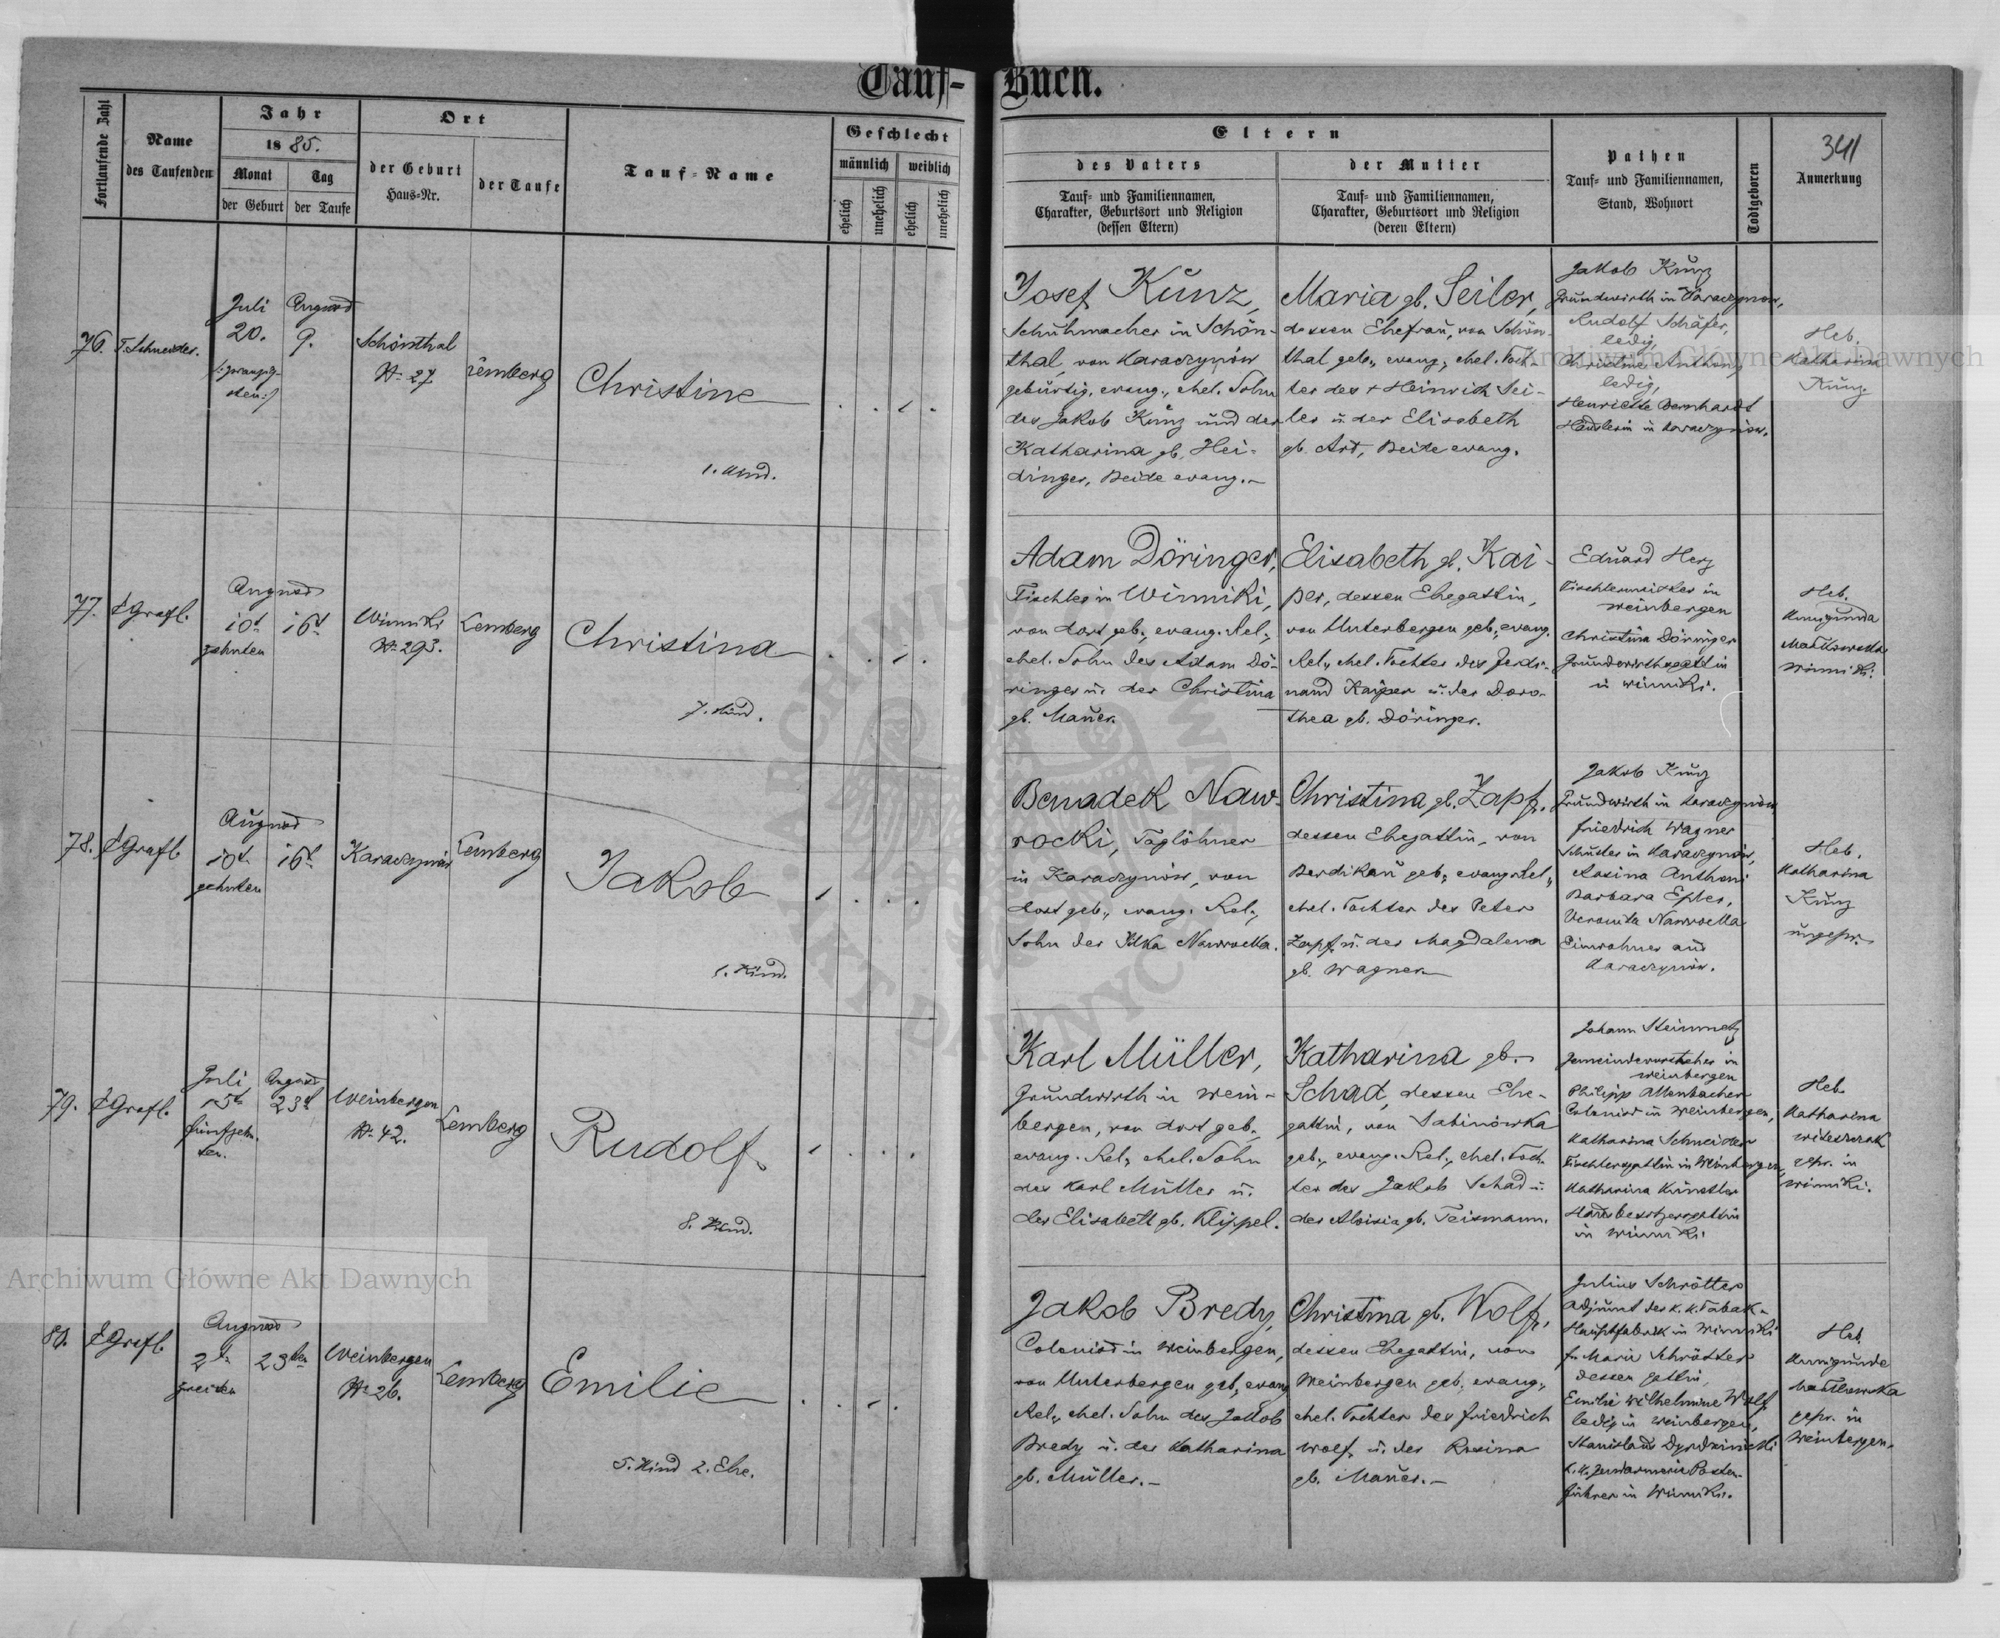 Tauf-Buch.
341
Fortlaufende Zahl
Name
des Taufenden
Jahr
1885.
Monat
Tag
der Geburt
der Taufe
Ort
der Geburt
Haus-Nr.
der Taufe
Tauf-Name
Geschlecht
männlich
weiblich
ehelich
unehelich
ehelich
unehelich
Eltern
des Vaters
Tauf- und Familiennamen,
Charakter, Geburtsort und Religion
(dessen Eltern)
der Mutter
Tauf- und Familiennamen,
Charakter, Geburtsort und Religion
(deren Eltern)
Pathen
Tauf- und Familiennamen,
Stand, Wohnort
Todtgeboren
Anmerkung
76.
T. Schneider.
Juli
20.
August
9.
Schönthal
Nr. 27
Lemberg
Christine
1. Kind.
Josef Kunz,
Schuhmacher in Schön-
thal, von Karaczynów
gebürtig, evang., ehel. Sohn
des Jakob Kunz und der
Katharina gb. Hei-
dinger, Beide evang.
Maria gb. Seiler,
dessen Ehefrau, von Schön-
thal geb., evang., ehel. Toch-
ter des + Heinrich Sei-
ler u. der Elisabeth
gb. Art, Beide evang.
Jakob Kunz
Grundwirth in Karaczynow,
Rudolf Schäfer,
ledig,
Christine Anthony
ledig,
Henriette Bernhardt
Häuslerin in Karaczynów.
Heb.
Katharina
Kunz.
77.
E Grafl.
August
10t
zehnten
16t
Winniki
Nr. 293.
Lemberg
Christina
7. Kind.
Adam Döringer,
Tischler in Winniki,
von dort geb., evang. Rel.,
ehel. Sohn des Adam Dö-
ringer u. der Christina
gb. Mauer.
Elisabeth gb. Kai-
per, dessen Ehegattin,
von Unterbergen geb., evang.
Rel., ehel. Tochter des Ferdi-
nand Kaiper u. der Doro-
thea gb. Döringer.
Eduard Herz
Tischlermeister in
Weinbergen
Christina Döringer
Grundwirthsgattin
in Winniki.
Heb.
Kunigunda
Matkowska
Winniki.
78.
E Grafl.
August
10t
zehnten
16t
Karaczynów
Lemberg
Jakob
1. Kind.
Benadek Naw-
rocki, Taglöhner
in Karaczynów, von
dort geb., evang. Rel.,
Sohn der Ilka Nawrocka.
Christina gb. Zapf,
dessen Ehegattin, von
Berdikau geb., evang. Rel.,
ehel. Tochter des Peter
Zapf u. der Magdalena
gb. Wagner
Jakob Kunz
Grundwirth in Karaczynów
Friedrich Wagner
Schuster in Karaczynów,
Rosina Anthoni
Barbara Epler,
Veronika Nawrocka
Einwohner aus
Karaczynów.
Heb.
Katharina
Kunz
ungepr.
79.
E Grafl.
Juli
15t
fünfzehn-
ten.
August
23t
Weinbergen
Nr. 42.
Lemberg
Rudolf
8. Kind.
Karl Müller,
Grundwirth in Wein-
bergen, von dort geb.
evang. Rel., ehel. Sohn
des Karl Müller u.
der Elisabeth gb. Klippel.
Katharina gb.
Schad, dessen Ehe-
gattin, von Sabinówka
geb., evang. Rel., ehel. Toch-
ter des Jakob Schad u.
der Aloisia gb. Teismann.
Johann Steinmetz
Gemeindevorsteher in
Weinbergen
Philipp Altenbacher
Colonist in Weinbergen,
Katharina Schneider
Tischlersgattin in Weinbergen,
Katharina Künstler
Hausbesitzersgattin
in Winniki
Heb.
Katharina
gepr. in
Winniki.
80.
E Grafl.
August
2t
zweiten
23ten
Weinbergen
Nr. 26.
Lemberg
Emilie
5. Kind 2. Ehe.
Jakob Bredy,
Colonist in Weinbergen,
von Unterbergen geb., evang
Rel., ehel. Sohn des Jakob
Bredy u. der Katharina
gb. Müller.
Christina gb. Wolf,
dessen Ehegattin, von
Weinbergen geb., evang.,
ehel. Tochter des Friedrich
Wolf u. der Rosina
gb. Mauer.
Julius Schrötter
Adjunct der k. k. Tabak-
Hauptfabrik in Winniki
Fr. Marie Schrötter
dessen Gattin,
Emilie Wilhelmine Wolf
ledig in Weinbergen,
Stanislaus
k. k. Gendarmerie Posten-
führer in Winniki.
Heb.
Kunigunde
Matkowska
gepr. in
Weinbergen.
Archiwum Główne Akt Dawnych
Archiwum Główne Akt Dawnych